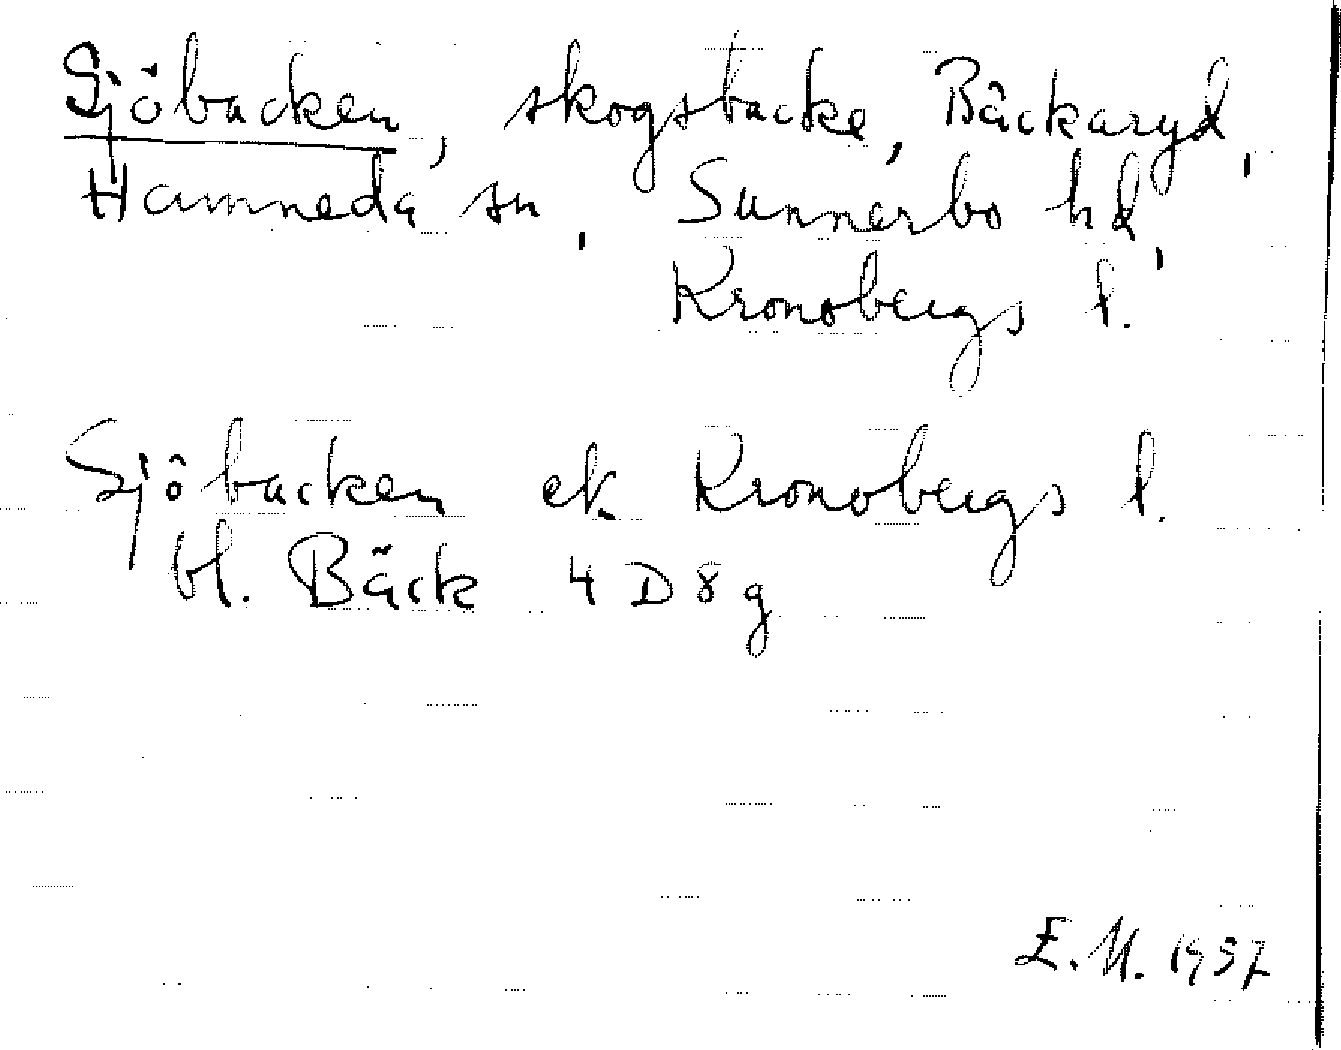 Sjöbacken, skogsbacke, Bäckaryd,
Hamneda sn, Sunnerbo hd,
Kronobergs l.
Sjöbacken ek Kronobergs l.
bl. Bäck 4 D 8 g
E. M. 1937